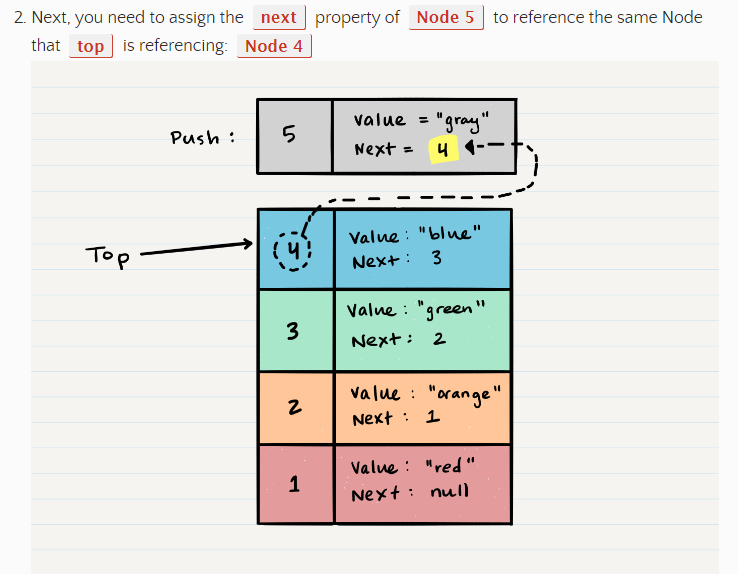 2. Next, you need to assign the next property of Node 5 to reference the same Node
that top is referencing: Node 4
Push :
5
value = "gray"
Next = 4
Top
4
Value : "blue"
Next : 3
3
Value : "green"
Next : 2
2
Value : "orange"
Next : 1
1
Value : "red"
Next : null